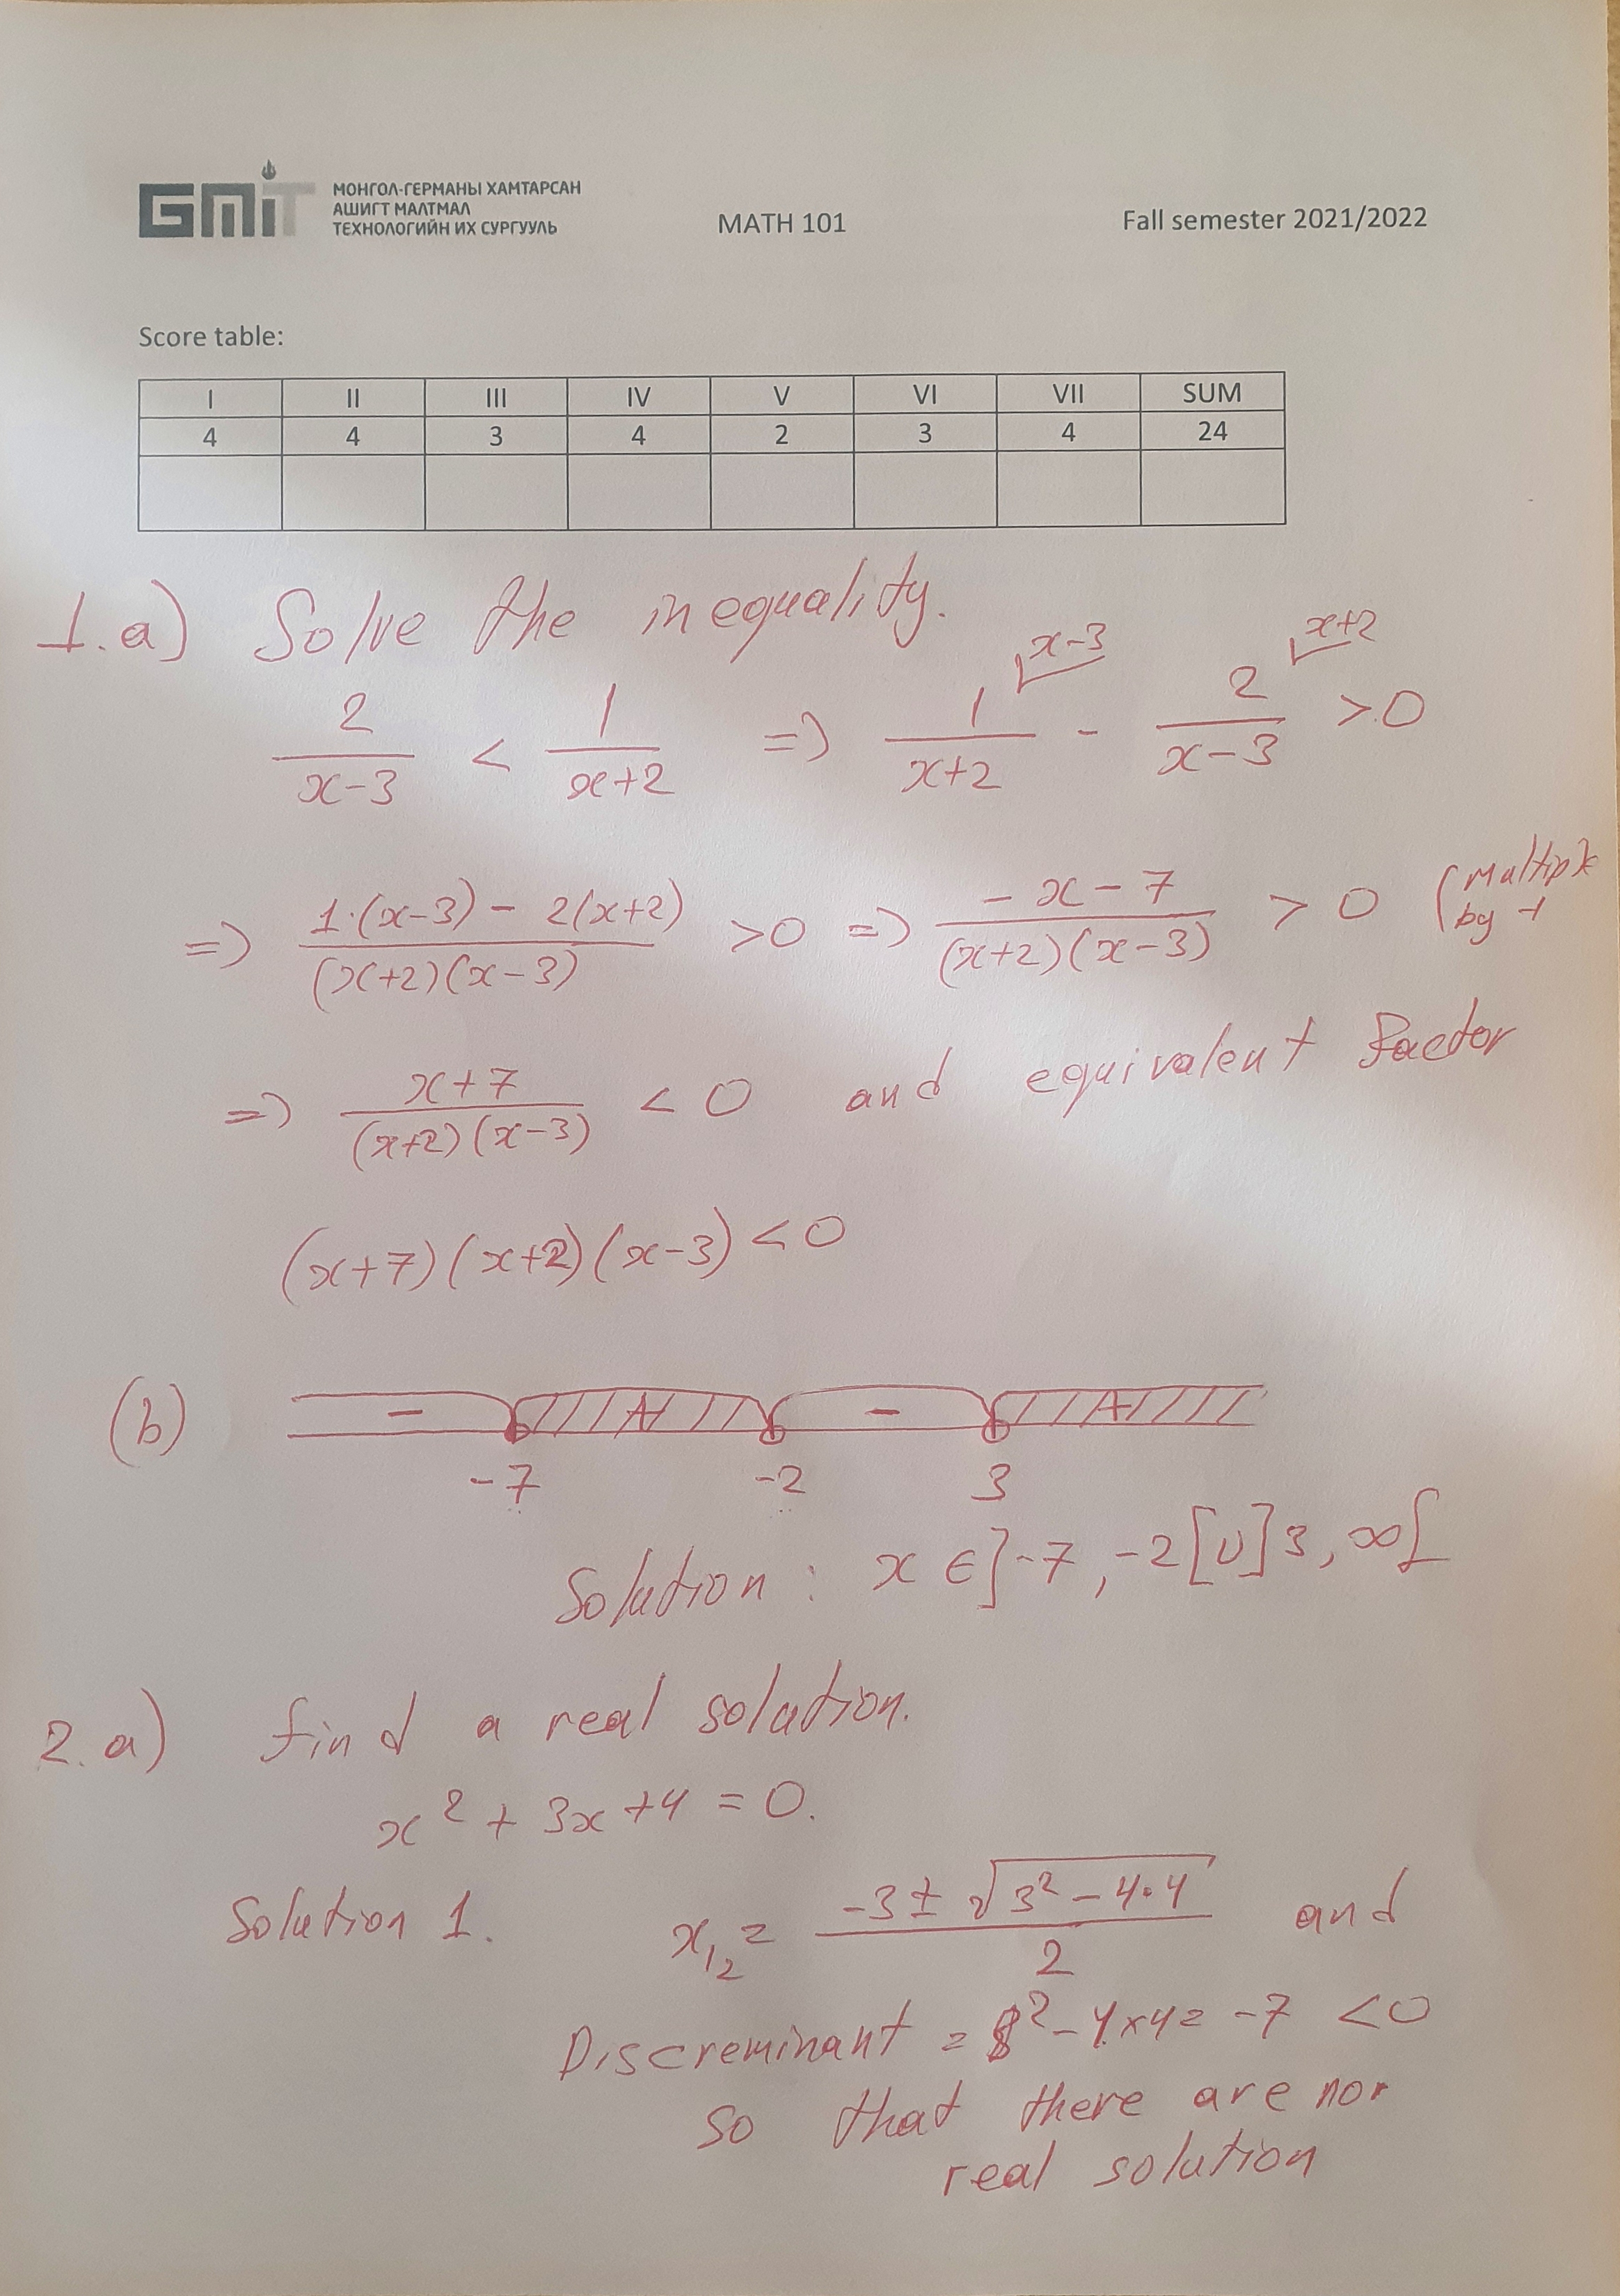 GMiT
МОНГОЛ-ГЕРМАНЫ ХАМТАРСАН
АШИГТ МАЛТМАЛ
ТЕХНОЛОГИЙН ИХ СУРГУУЛЬ
MATH 101
Fall semester 2021/2022
Score table:
I II III IV V VI VII SUM
4 4 3 4 2 3 4 24
1.a) Solve the inequality.
x-3 x+2
2/(x-3) < 1/(x+2) => 1/(x+2) - 2/(x-3) >0
=> (1·(x-3) - 2(x+2))/((x+2)(x-3)) >0 => (-x-7)/((x+2)(x-3)) > 0 (
by -1
=> (x+7)/((x+2)(x-3)) < 0 and equivalent factor
(x+7)(x+2)(x-3) < 0
(b) - + - +
-7 -2 3
Solution: x ∈ ]-7, -2[ ∪ ]3, ∞[
2.a) find a real solution.
x² + 3x + 4 = 0.
Solution 1. x₁₂ = (-3 ± √(3² - 4·4))/2 and
Discreminant = 3² - 4×4 = -7 < 0
so that there are nor
real solution